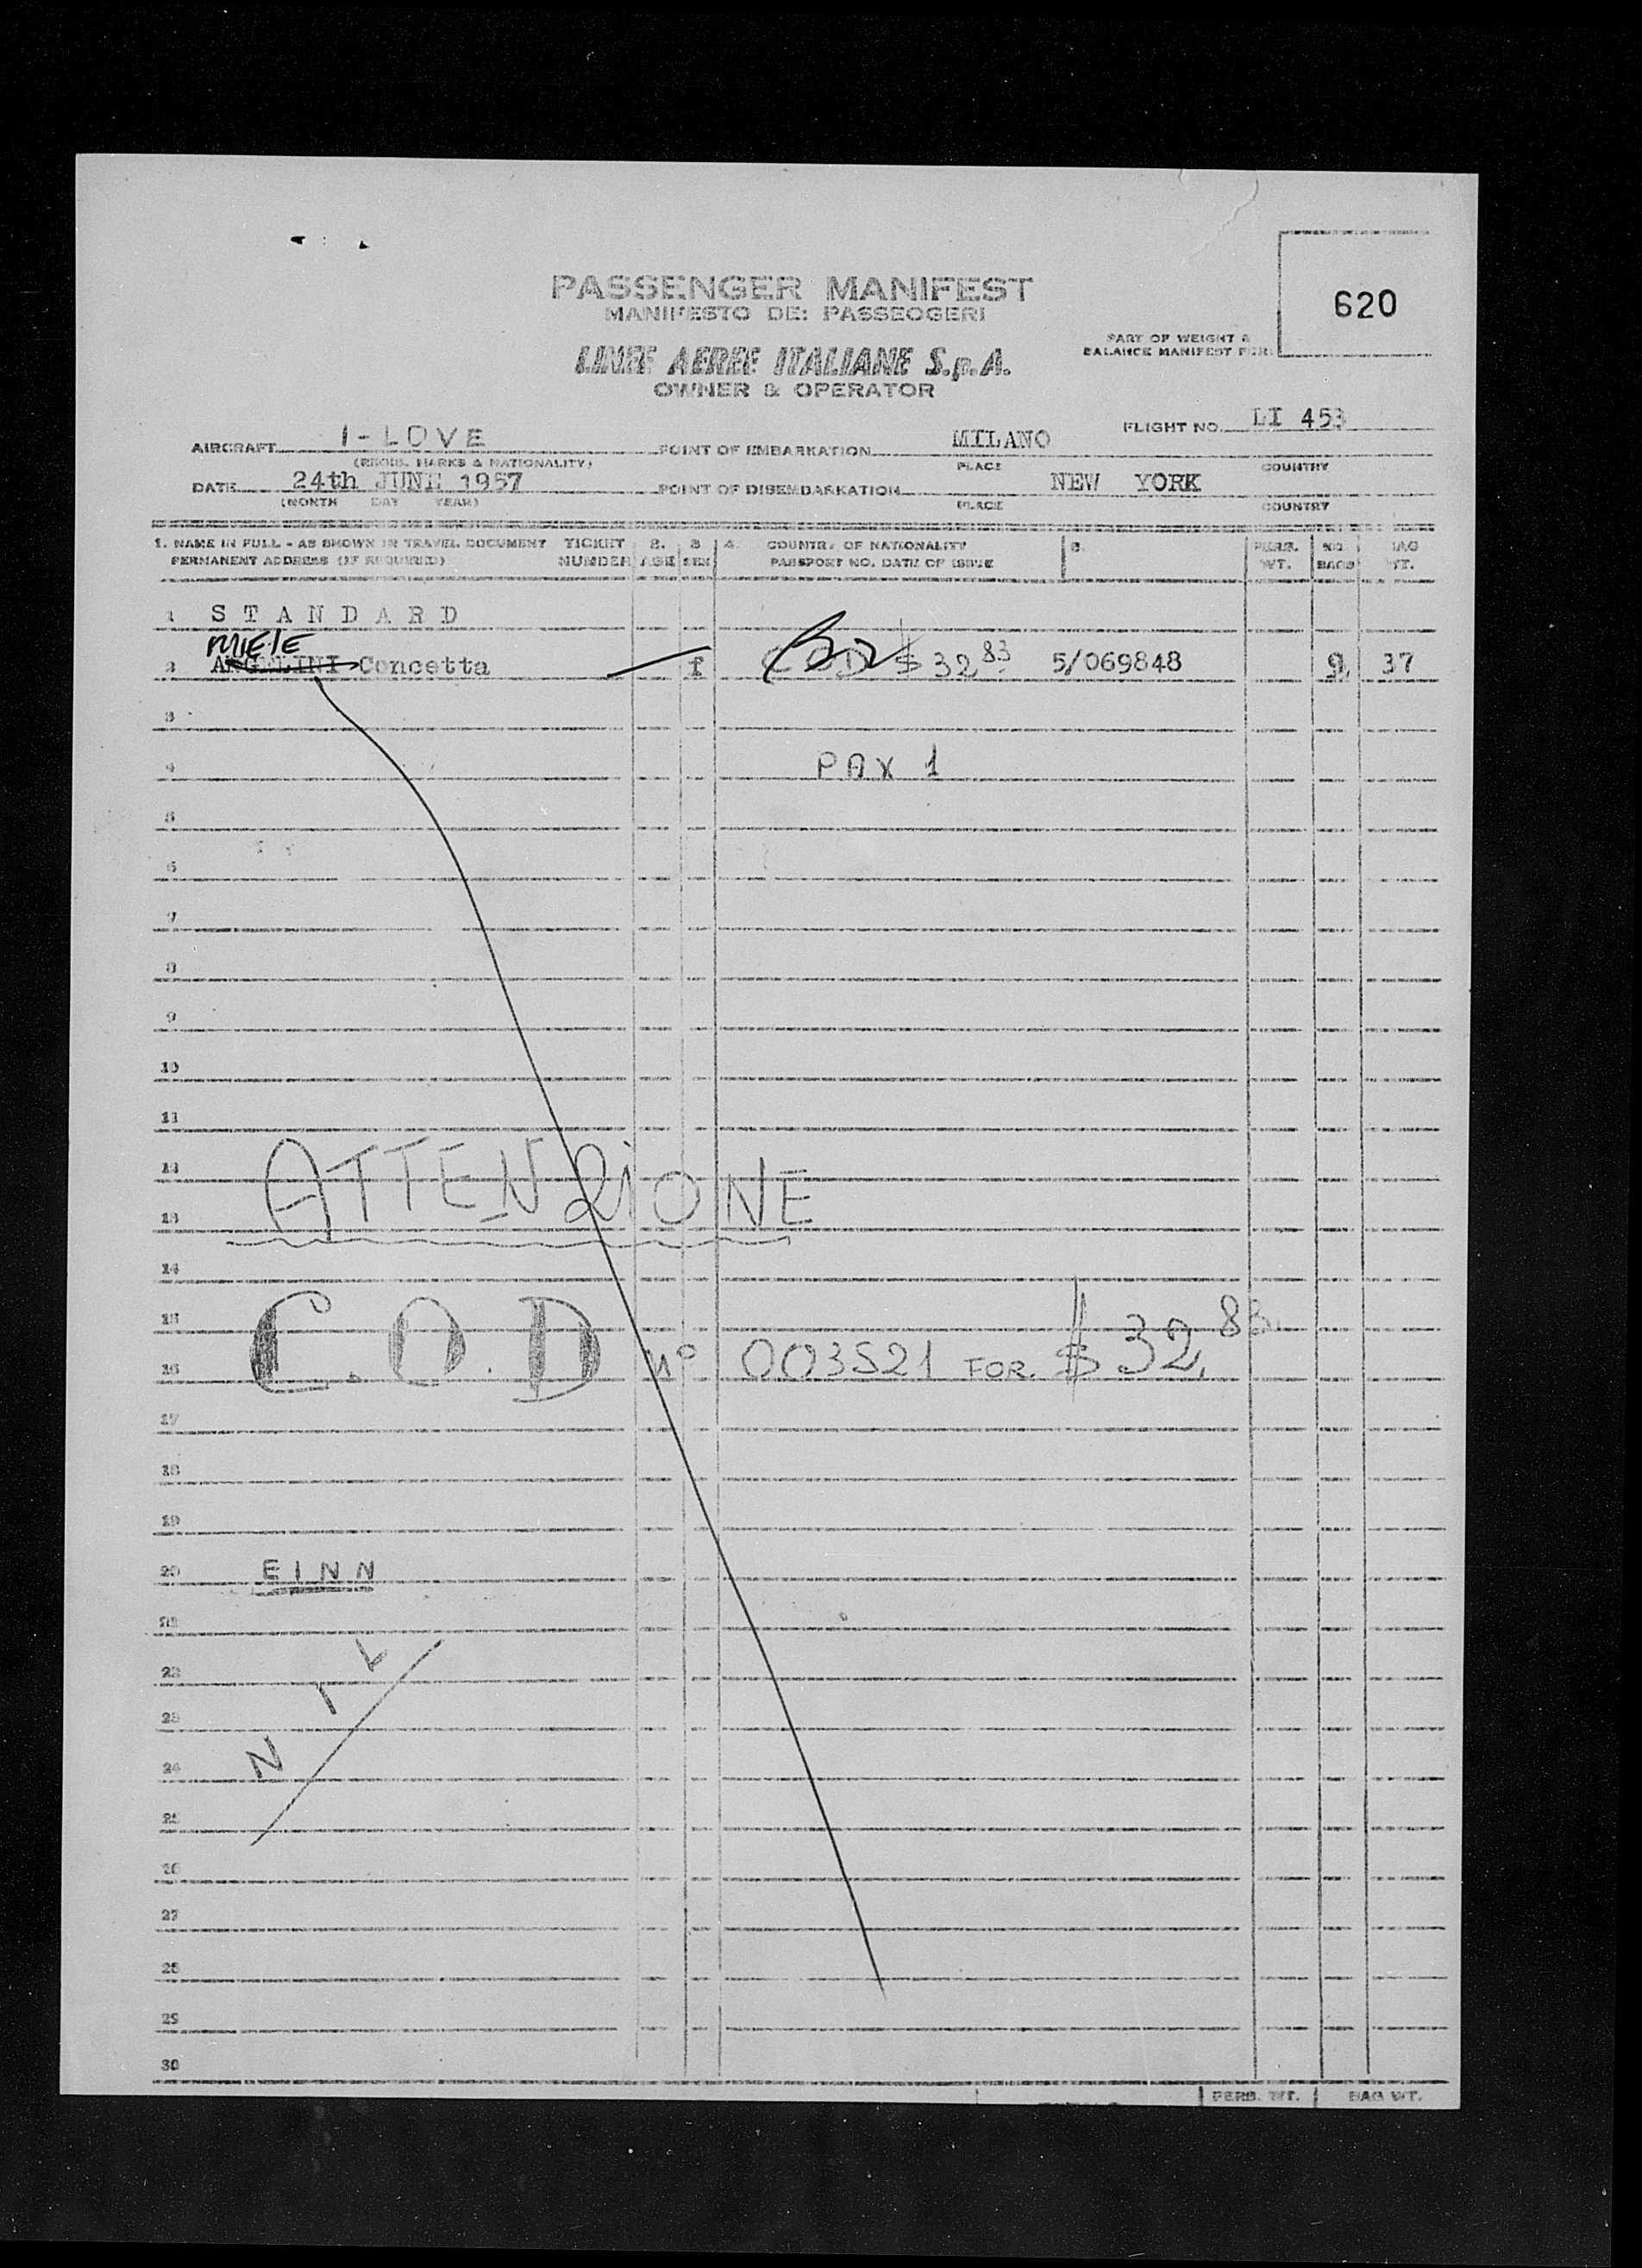 PASSENGER MANIFEST
MANIFESTO DEI PASSEGGERI
620
PART OF WEIGHT &
BALANCE MANIFEST FOR:
LINEE AEREE ITALIANE S.p.A.
OWNER & OPERATOR
FLIGHT NO. LI 453
AIRCRAFT I-LOVE POINT OF EMBARKATION MILANO
(REGIS. MARKS & NATIONALITY) PLACE COUNTRY
DATE 24th JUNE 1957 POINT OF DISEMBARKATION NEW YORK
(MONTH DAY YEAR) PLACE COUNTRY
1. NAME IN FULL - AS SHOWN IN TRAVEL DOCUMENT TICKET 2. 3 4. COUNTRY OF NATIONALITY 5. PERS. NO. BAG
PERMANENT ADDRESS (IF REQUIRED) NUMBER AGE SEX PASSPORT NO. DATE OF ISSUE WT. BAGS WT.
1 STANDARD
MIELE
2 ANGELINI Concetta f COD $ 32 83 5/069848 2 37
3
4 PAX 1
5
6
7
8
9
10
11
12 ATTENZIONE
13
14
15
16 C.O.D N° 003521 FOR. $ 32. 83
17
18
19
20 EINN
21
22
23
NIL
24
25
26
27
28
29
30
PERS. WT. BAG WT.